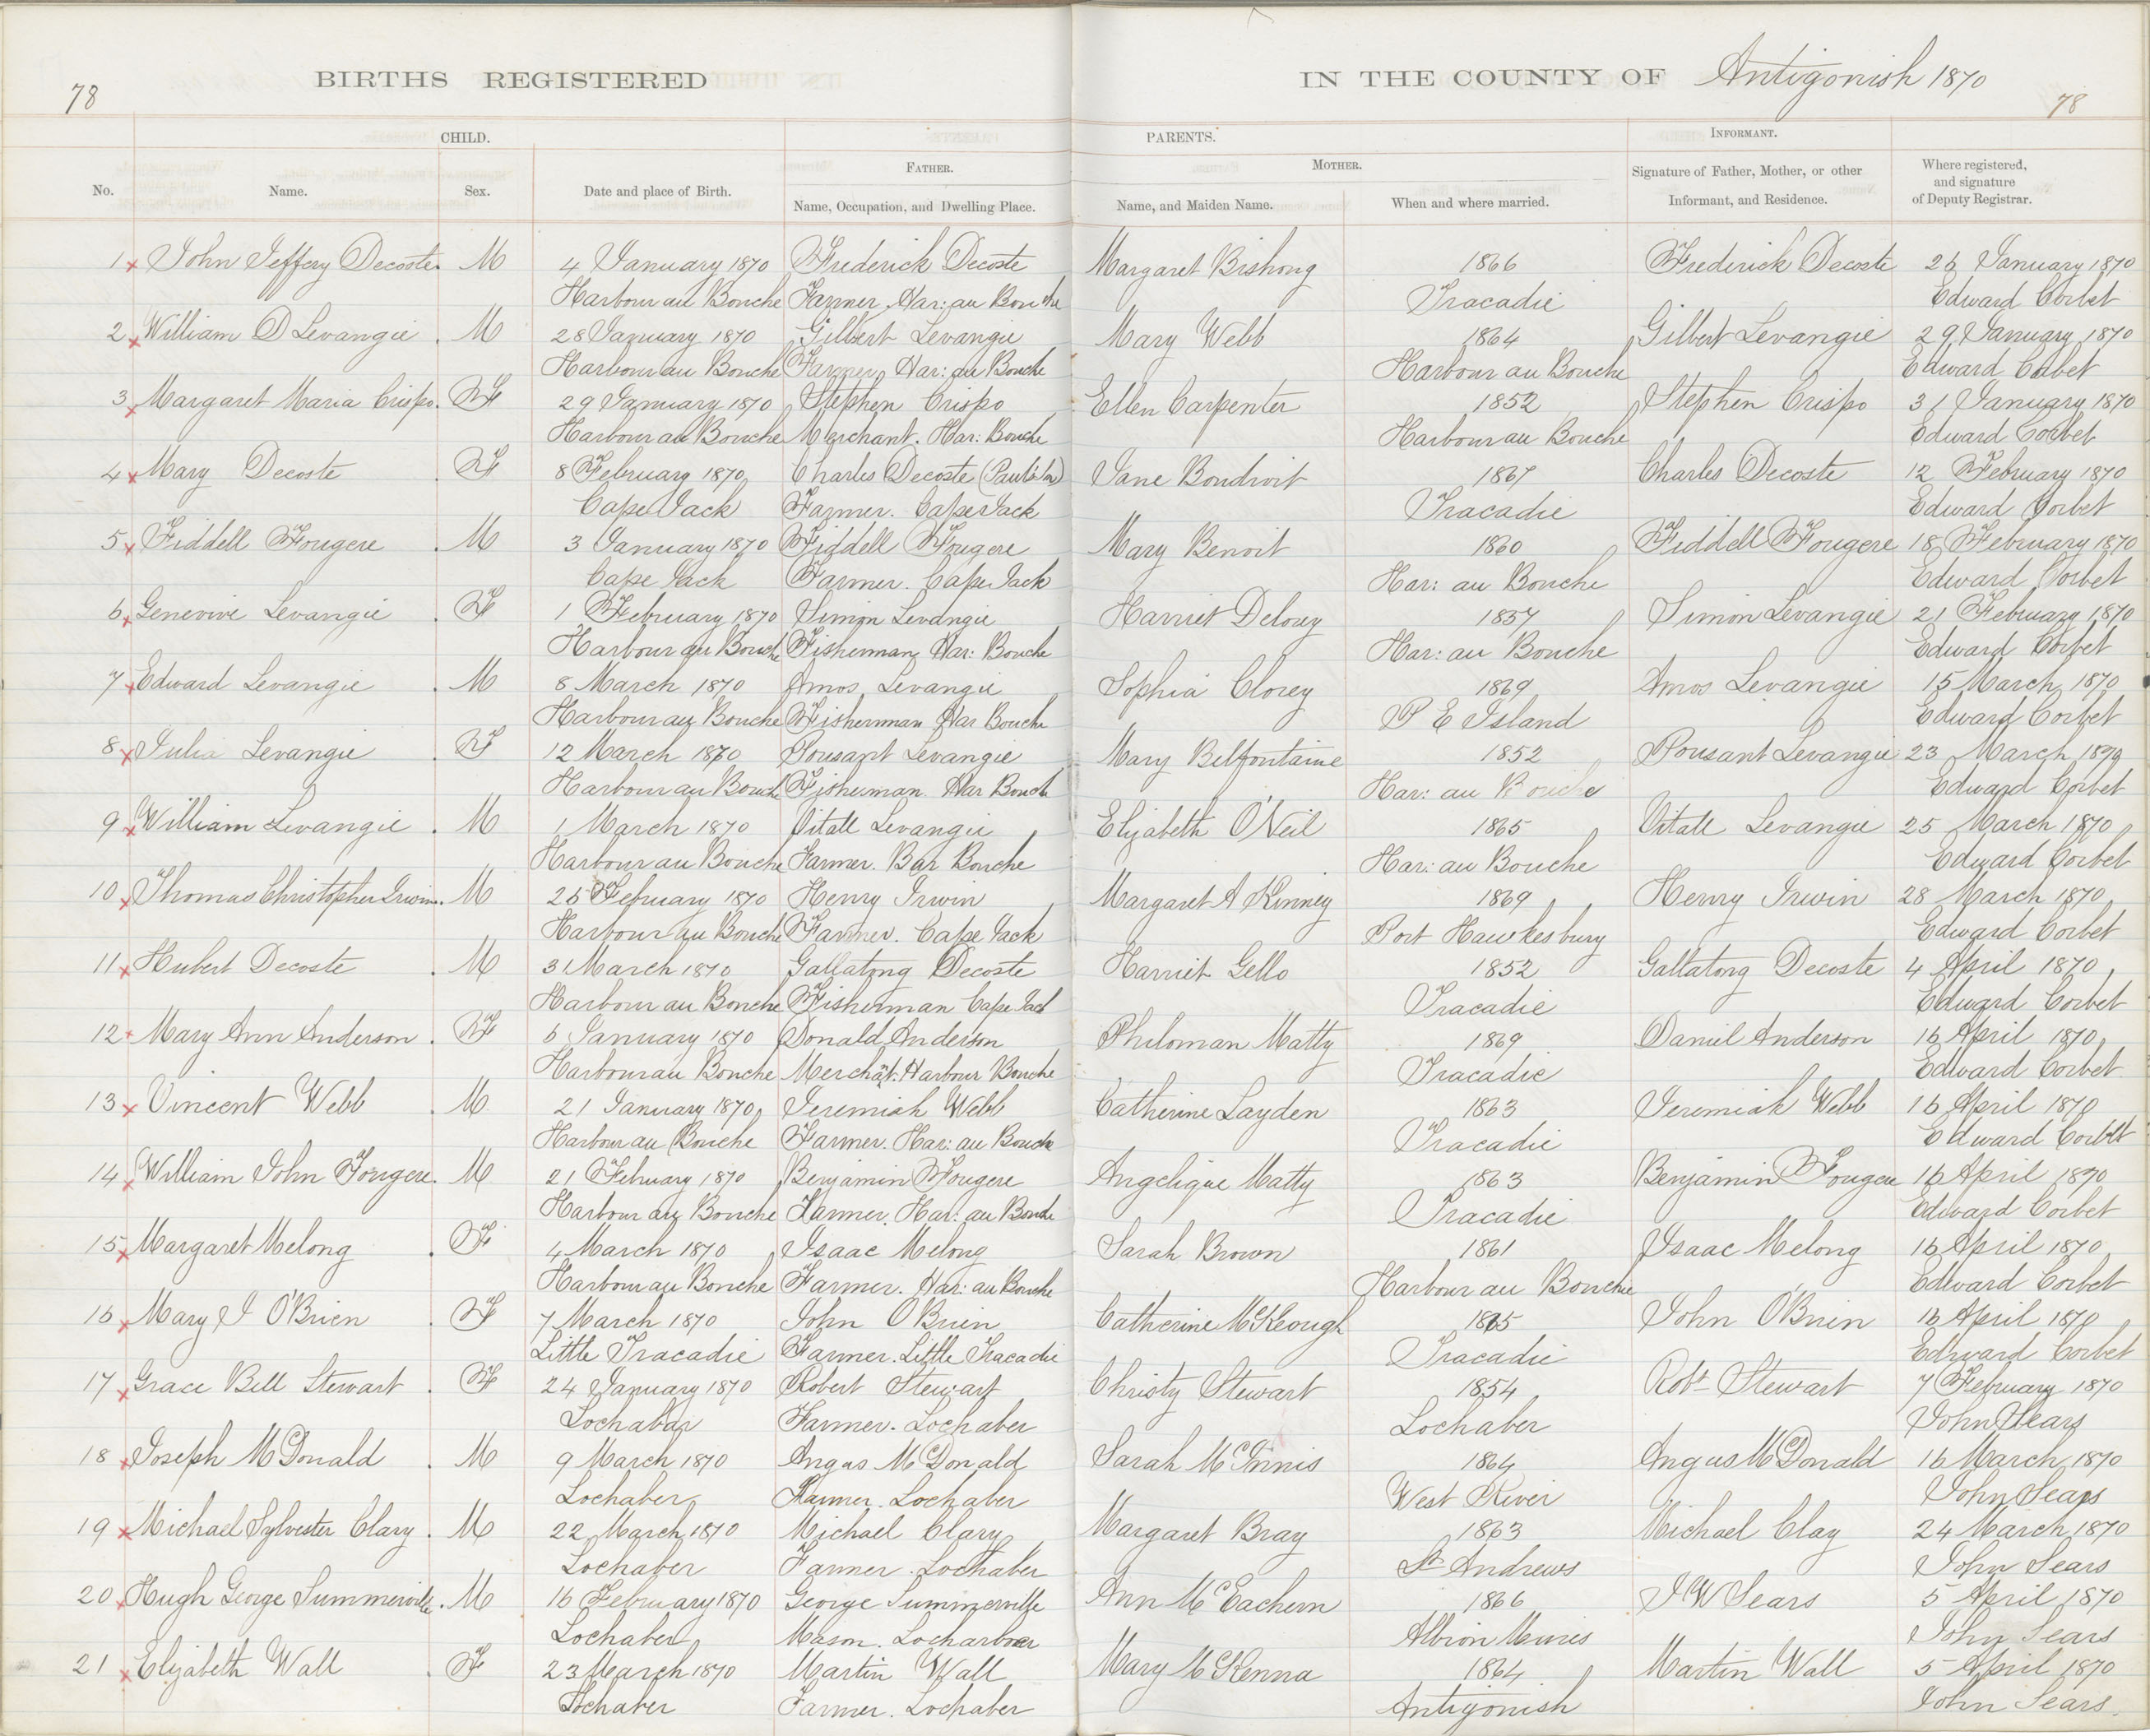 78 BIRTHS REGISTERED IN THE COUNTY OF Antigonish 1870 78
CHILD. PARENTS. INFORMANT.
No. Name. Sex. Date and place of Birth. FATHER. Name, Occupation, and Dwelling Place. MOTHER. Name, and Maiden Name. When and where married. Signature of Father, Mother, or other Informant, and Residence. Where registered, and signature of Deputy Registrar.
1 John Jeffery Decoste M 4 January 1870 Frederick Decoste Margaret Bishong 1866 Frederick Decoste 26 January 1870
Harbour au Bouche Farmer Har: au Bouche Tracadie Edward Corbet
2 William D Levangie M 28 January 1870 Gilbert Levangie Mary Webb 1864 Gilbert Levangie 29 January 1870
Harbour au Bouche Farmer Har: au Bouche Harbour au Bouche Edward Corbet
3 Margaret Maria Crispo F 29 January 1870 Stephen Crispo Ellen Carpenter 1852 Stephen Crispo 31 January 1870
Harbour au Bouche Merchant. Har: Bouche Harbour au Bouche Edward Corbet
4 Mary Decoste F 8 February 1870 Charles Decoste Jane Boudroit 1867 Charles Decoste 12 February 1870
Cape Jack Farmer. Cape Jack Tracadie Edward Corbet
5 Fiddell Fougere M 3 January 1870 Fiddell Fougere Mary Benoit 1860 Fiddell Fougere 18 February 1870
Cape Jack Farmer. Cape Jack Har: au Bouche Edward Corbet
6 Genevive Levangie F 1 February 1870 Simon Levangie Harriet Delorey 1857 Simon Levangie 21 February 1870
Harbour au Bouche Fisherman Har: Bouche Har: au Bouche Edward Corbet
7 Edward Levangie M 8 March 1870 Amos Levangie Sophia Clorey 1869 Amos Levangie 15 March 1870
Harbour au Bouche Fisherman Har Bouche P E Island Edward Corbet
8 Julia Levangie F 12 March 1870 Pousant Levangie Mary Belfontaine 1852 Pousant Levangie 23 March 1870
Harbour au Bouche Fisherman Har Bouche Har: au Bouche Edward Corbet
9 William Levangie M 1 March 1870 Vitall Levangie Elizabeth O'Neil 1865 Vitall Levangie 25 March 1870
Harbour au Bouche Farmer. Bar Bouche Har: au Bouche Edward Corbet
10 Thomas Christopher Irwin M 25 February 1870 Henry Irwin Margaret A Kinney 1869 Henry Irwin 28 March 1870
Harbour au Bouche Farmer. Cape Jack Port Hawkesbury Edward Corbet
11 Hubert Decoste M 31 March 1870 Gallatong Decoste Harriet Gello 1852 Gallatong Decoste 4 April 1870
Harbour au Bouche Fisherman Cape Jack Tracadie Edward Corbet
12 Mary Ann Anderson F 6 January 1870 Donald Anderson Philoman Matty 1869 Daniel Anderson 16 April 1870
Harbour au Bouche Merchat. Harbour Bouche Tracadie Edward Corbet
13 Vincent Webb M 21 January 1870 Jeremiah Webb Catherine Layden 1863 Jeremiah Webb 16 April 1870
Harbour au Bouche Farmer. Har: au Bouche Tracadie Edward Corbet
14 William John Fougere M 21 February 1870 Benjamin Fougere Angelique Matty 1863 Benjamin Fougere 16 April 1870
Harbour au Bouche Farmer. Har: au Bouche Tracadie Edward Corbet
15 Margaret Melong F 4 March 1870 Isaac Melong Sarah Brown 1861 Isaac Melong 16 April 1870
Harbour au Bouche Farmer. Har: au Bouche Harbour au Bouche Edward Corbet
16 Mary J O'Brien F 7 March 1870 John O'Brien Catherine McKeough 1865 John O'Brien 16 April 1870
Little Tracadie Farmer. Little Tracadie Tracadie Edward Corbet
17 Grace Bell Stewart F 24 January 1870 Robert Stewart Christy Stewart 1854 Robt Stewart 7 February 1870
Lochabar Farmer. Lochaber Lochaber John Sears
18 Joseph McDonald M 9 March 1870 Angus McDonald Sarah McInnis 1864 Angus McDonald 16 March 1870
Lochaber Farmer. Lochaber West River John Sears
19 Michael Sylvester Clary M 22 March 1870 Michael Clary Margaret Bray 1863 Michael Clay 24 March 1870
Lochaber Farmer. Lochaber St Andrews John Sears
20 Hugh George Summerville M 16 February 1870 George Summerville Ann McEachern 1866 J W Sears 5 April 1870
Lochaber Mason. Locharber Albion Mines John Sears
21 Elizabeth Wall F 23 March 1870 Martin Wall Mary McKenna 1864 Martin Wall 5 April 1870
Lochaber Farmer. Lochaber Antigonish John Sears